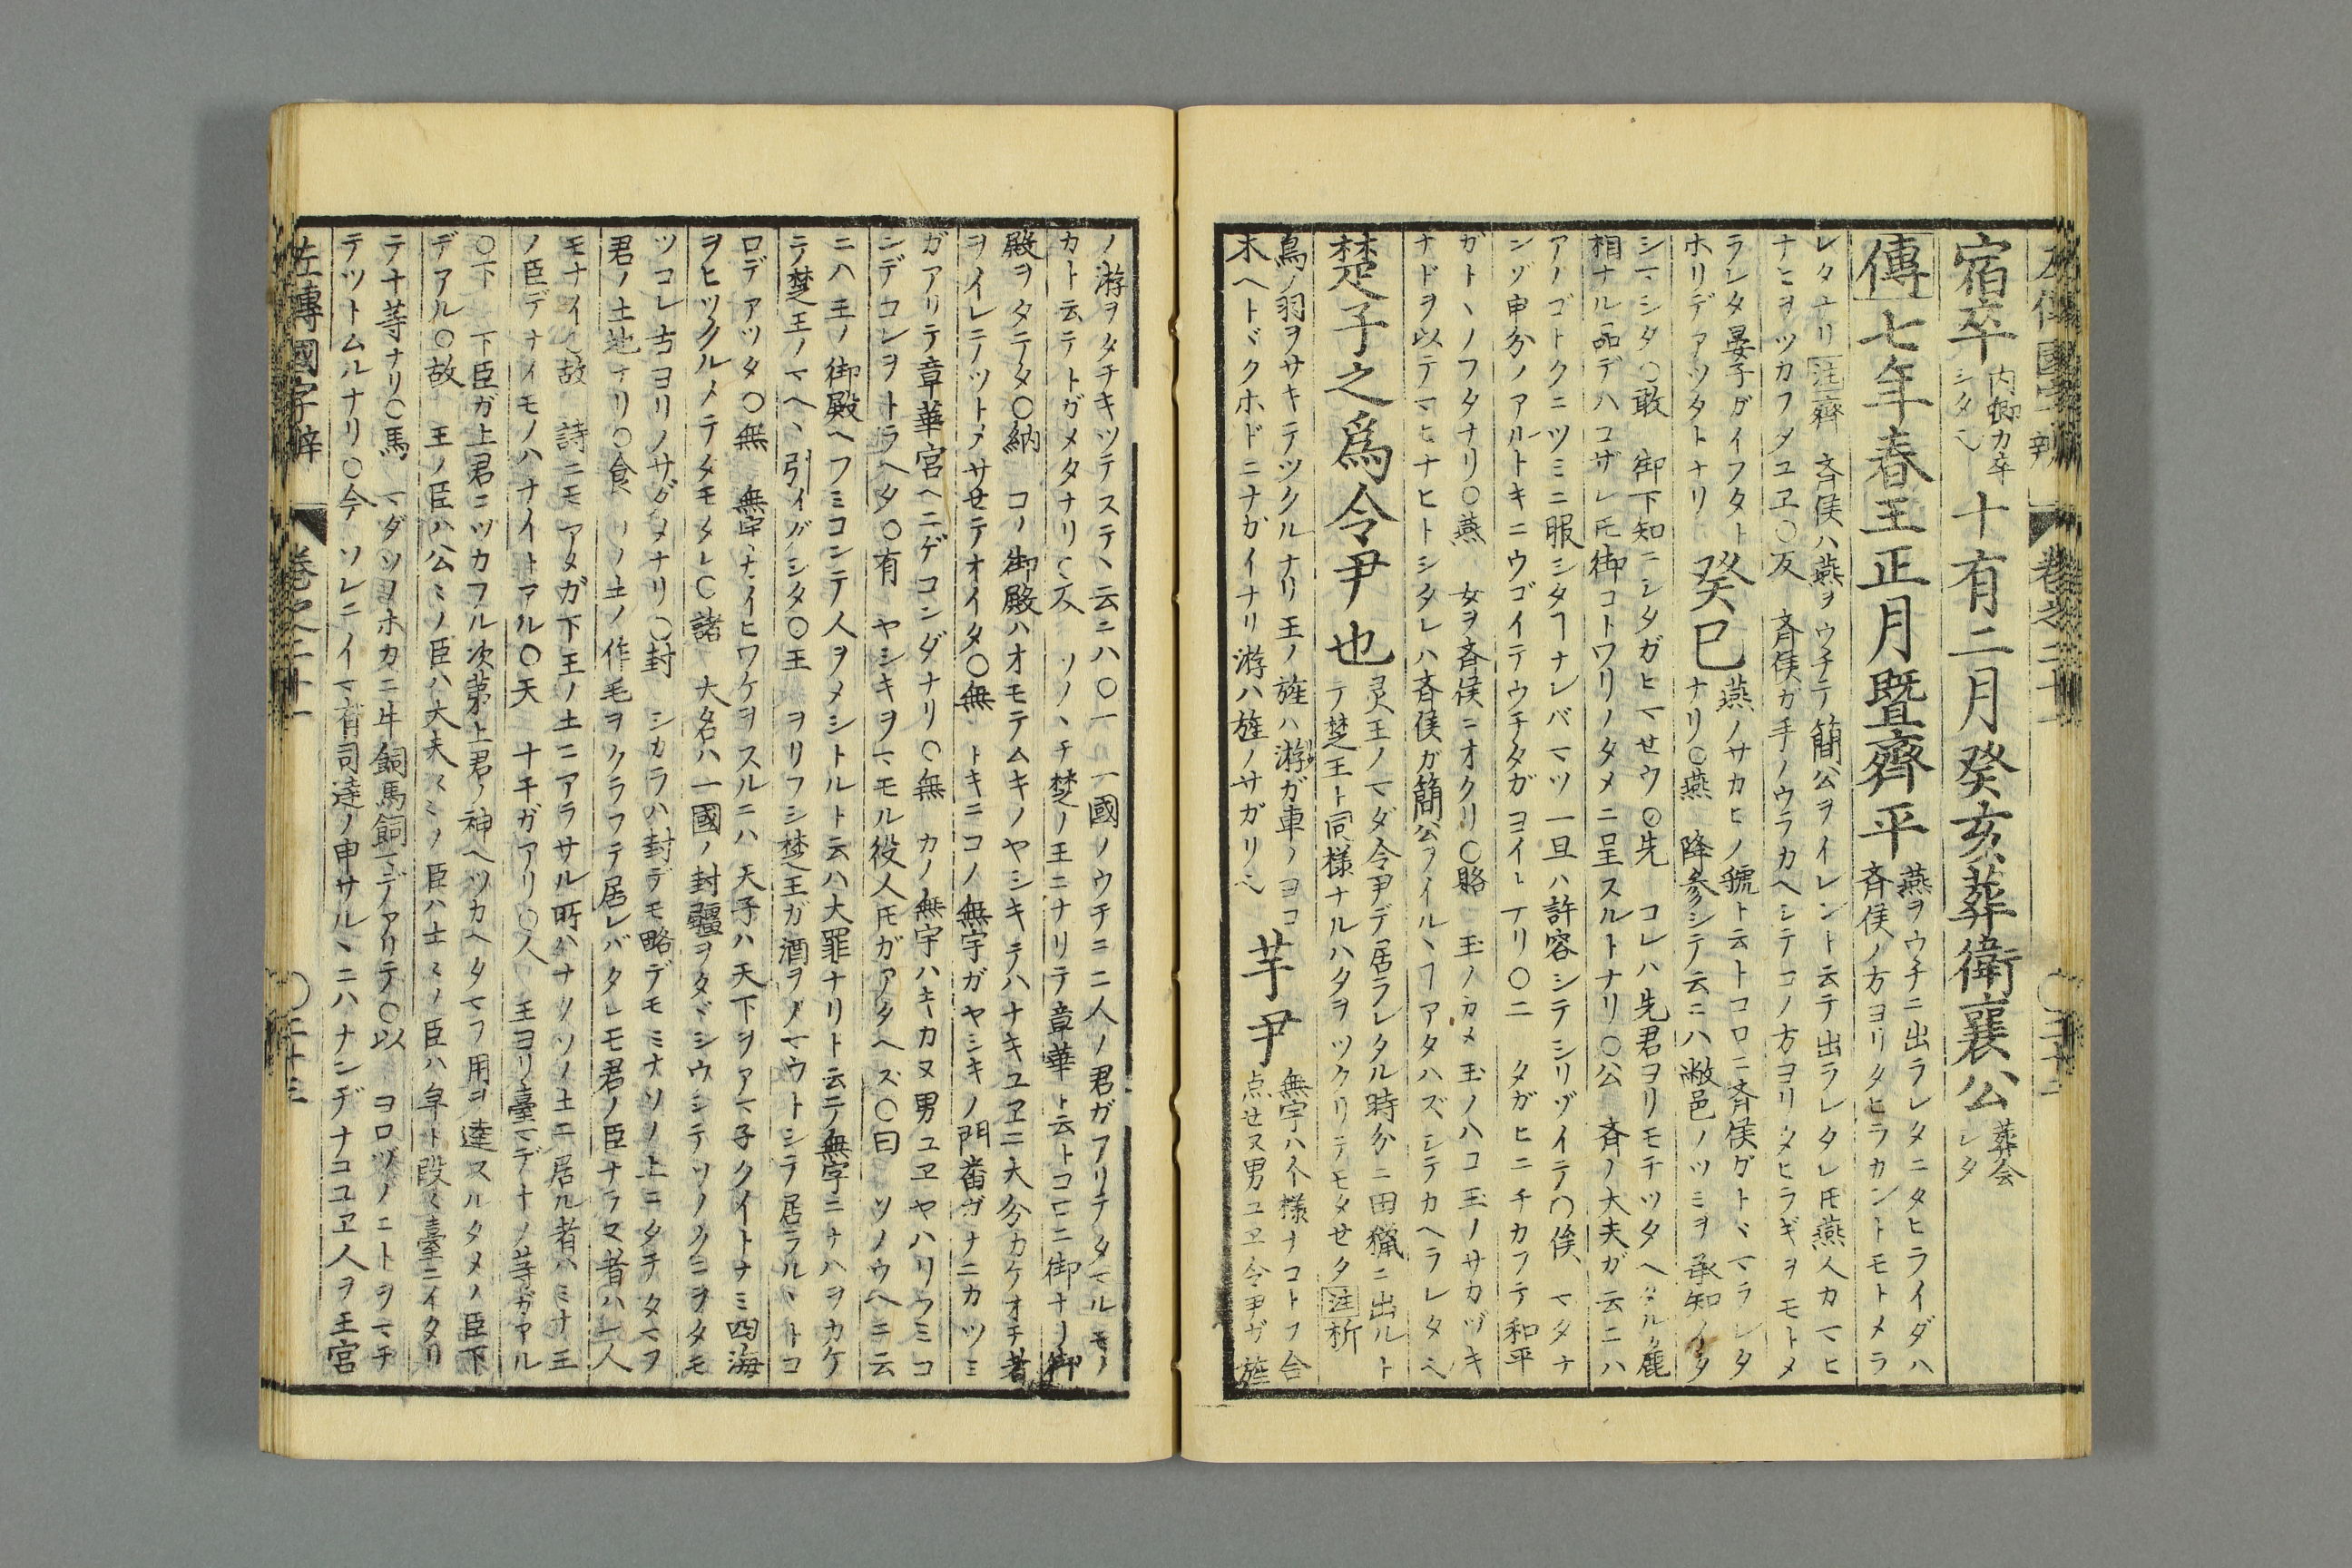 左傳國字辨 卷之二十一 ○二十二
宿卒 内卿カ卒シタ也 十有二月癸亥葬衛襄公 葬会レタ
傳七年春王正月暨齊平 燕ヲウチニ出ラレタニタヒライダハ
斉侯ノ方ヨリタヒラカントモトメラ
レタナリ 注齊 斉侯ハ燕ヲウチテ簡公ヲイレント云テ出ラレタレ𪜈燕人カマヒ
ナヒヲツカフタユヱ○反 斉侯カ手ノウラカヘシテコノ方ヨリタヒラギヲモトメ
ラレタ晏子ガイフタト
ホリデアツタトナリ
癸巳
燕ノサカヒノ虢ト云トコロニ斉侯ガトヾマラレタ
ナリ○燕 降参シテ云ニハ敝邑ノツミヲ承知イタ
シマシタ○敢 御下知ニシタガヒマせウ○先 コレハ先君ヨリモチツタヘタル麁
相ナル品デハコザレ𪜈御コトワリノタメニ呈スルトナリ○公 斉ノ大夫ガ云ニハ
アノゴトクニツミニ服シタヿナレバマツ一旦ハ許容シテシリゾイテ○俟 マタナ
ンゾ申分ノアルトキニウゴイテウチタガヨイトナリ○二 タガヒニチカフテ和平
ガトヽノフタナリ○燕 女ヲ斉侯ニオクリ○賂 玉ノカメ玉ノハコ玉ノサカヅキ
ナドヲ以テマヒナヒトシタレハ斉侯ガ簡公ヲイルヽヿアタハズシテカヘラレタ也
楚子之爲令尹也
灵王ノマダ令尹デ居ラレタル時分ニ田獵ニ出ルト
テ楚王ト同様ナルハタヲツクリテモタせタ 注析
鳥ノ羽ヲサキテツクルナリ王ノ旌ハ游ガ車ノヨコ
木ヘトヾクホドニナガイナリ游ハ旌ノサガリ也
芋尹
無宇ハ不様ナコトフ合
点せヌ男ユヱ令尹ガ旌
ノ游ヲタチキツテステヽ云ニハ○一 一國ノウチニ二人ノ君ガアリテタマルモノ
カト云テトガメタナリ○及 ソノヽチ楚ノ王ニナリテ章華ト云トコロニ御ナリ御
殿ヲタテタ○納 コノ御殿ハオモテムキノヤシキテハナキユヱニ大分カケオチ者
ヲイレテノツトアサせテオイタ○無 トキニコノ無宇ガヤシキノ門番ガナニカツミ
ガアリテ章華宮ヘニゲコンダナリ○無 カノ無宇ハキカヌ男ユヱヤハリフミコ
ンデコレヲトラヘタ○有 ヤシキヲマモル役人𪜈ガアタヘズ○曰 ソノウヘニ云
ニハ王ノ御殿ヘフミコンテ人ヲメシトルト云ハ大罪ナリト云テ無宇ニナハヲカケ
テ楚王ノマヘヽ引イダシタ○王 ヲリフシ楚王ガ酒ヲノマウトシテ居ラルヽトコ
ロデアツタ○無 無宇ナイヒワケヲスルニハ天子ハ天下ヲアマ子クイトナミ四海
ヲヒツクルノテタモタレ○諸 大名ハ一國ノ封疆ヲタヾシウシテソノクニヲタモ
ツコレ古ヨリノサダメナリ○封 シカラハ封デモ略デモミナソノ上ニタチタマヲ
君ノ土地ナリ○食 ソノ土ノ作毛ヲクラフテ居レバタレモ君ノ臣ナラヌ者ハ一人
モナイ○故 詩ニモアタガ下王ノ土ニアラサル所ハナクソノ土ニ居ル者ハミナ王
ノ臣デナイモノハナイトアル○天 十干ガアリ○人 王ヨリ臺マデ十ノ等ガアル
○下 下臣ガ上君ニツカフル次第上君ノ神ヘツカヘタマフ用ヲ達スルタメノ臣下
デアル○故 王ノ臣ハ公ミノ臣ハ大夫ミノ臣ハ士ミノ臣ハ皁ト段々臺ニイタリ
テ十等ナリ○馬 マダソノホカニ牛飼馬飼マデアリテ○以 ヨロヅノコトヲマチ
テツトムルナリ○今 ソレニイマ有司達ノ申サルヽニハナンヂナユヱ人ヲ王宮
左傳國字辨 卷之二十一 ○二十三